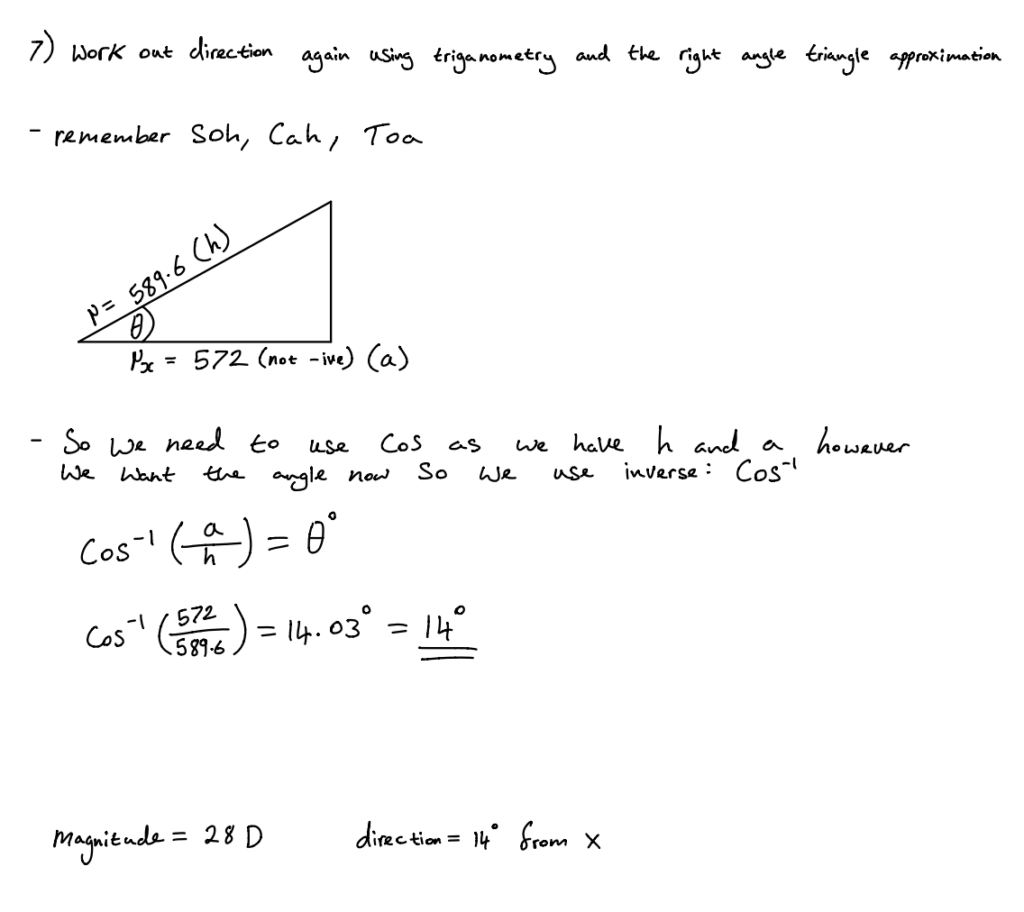 7) Work out direction again using triganometry and the right angle triangle approximation
- remember Soh, Cah, Toa
μ = 589.6 (h)
θ
μx = 572 (not -ive) (a)
- So we need to use Cos as we have h and a however
we want the angle now so we use inverse: Cos⁻¹
Cos⁻¹ (a/h) = θ°
Cos⁻¹ (572/589.6) = 14.03° = 14°
Magnitude = 28 D direction = 14° from x